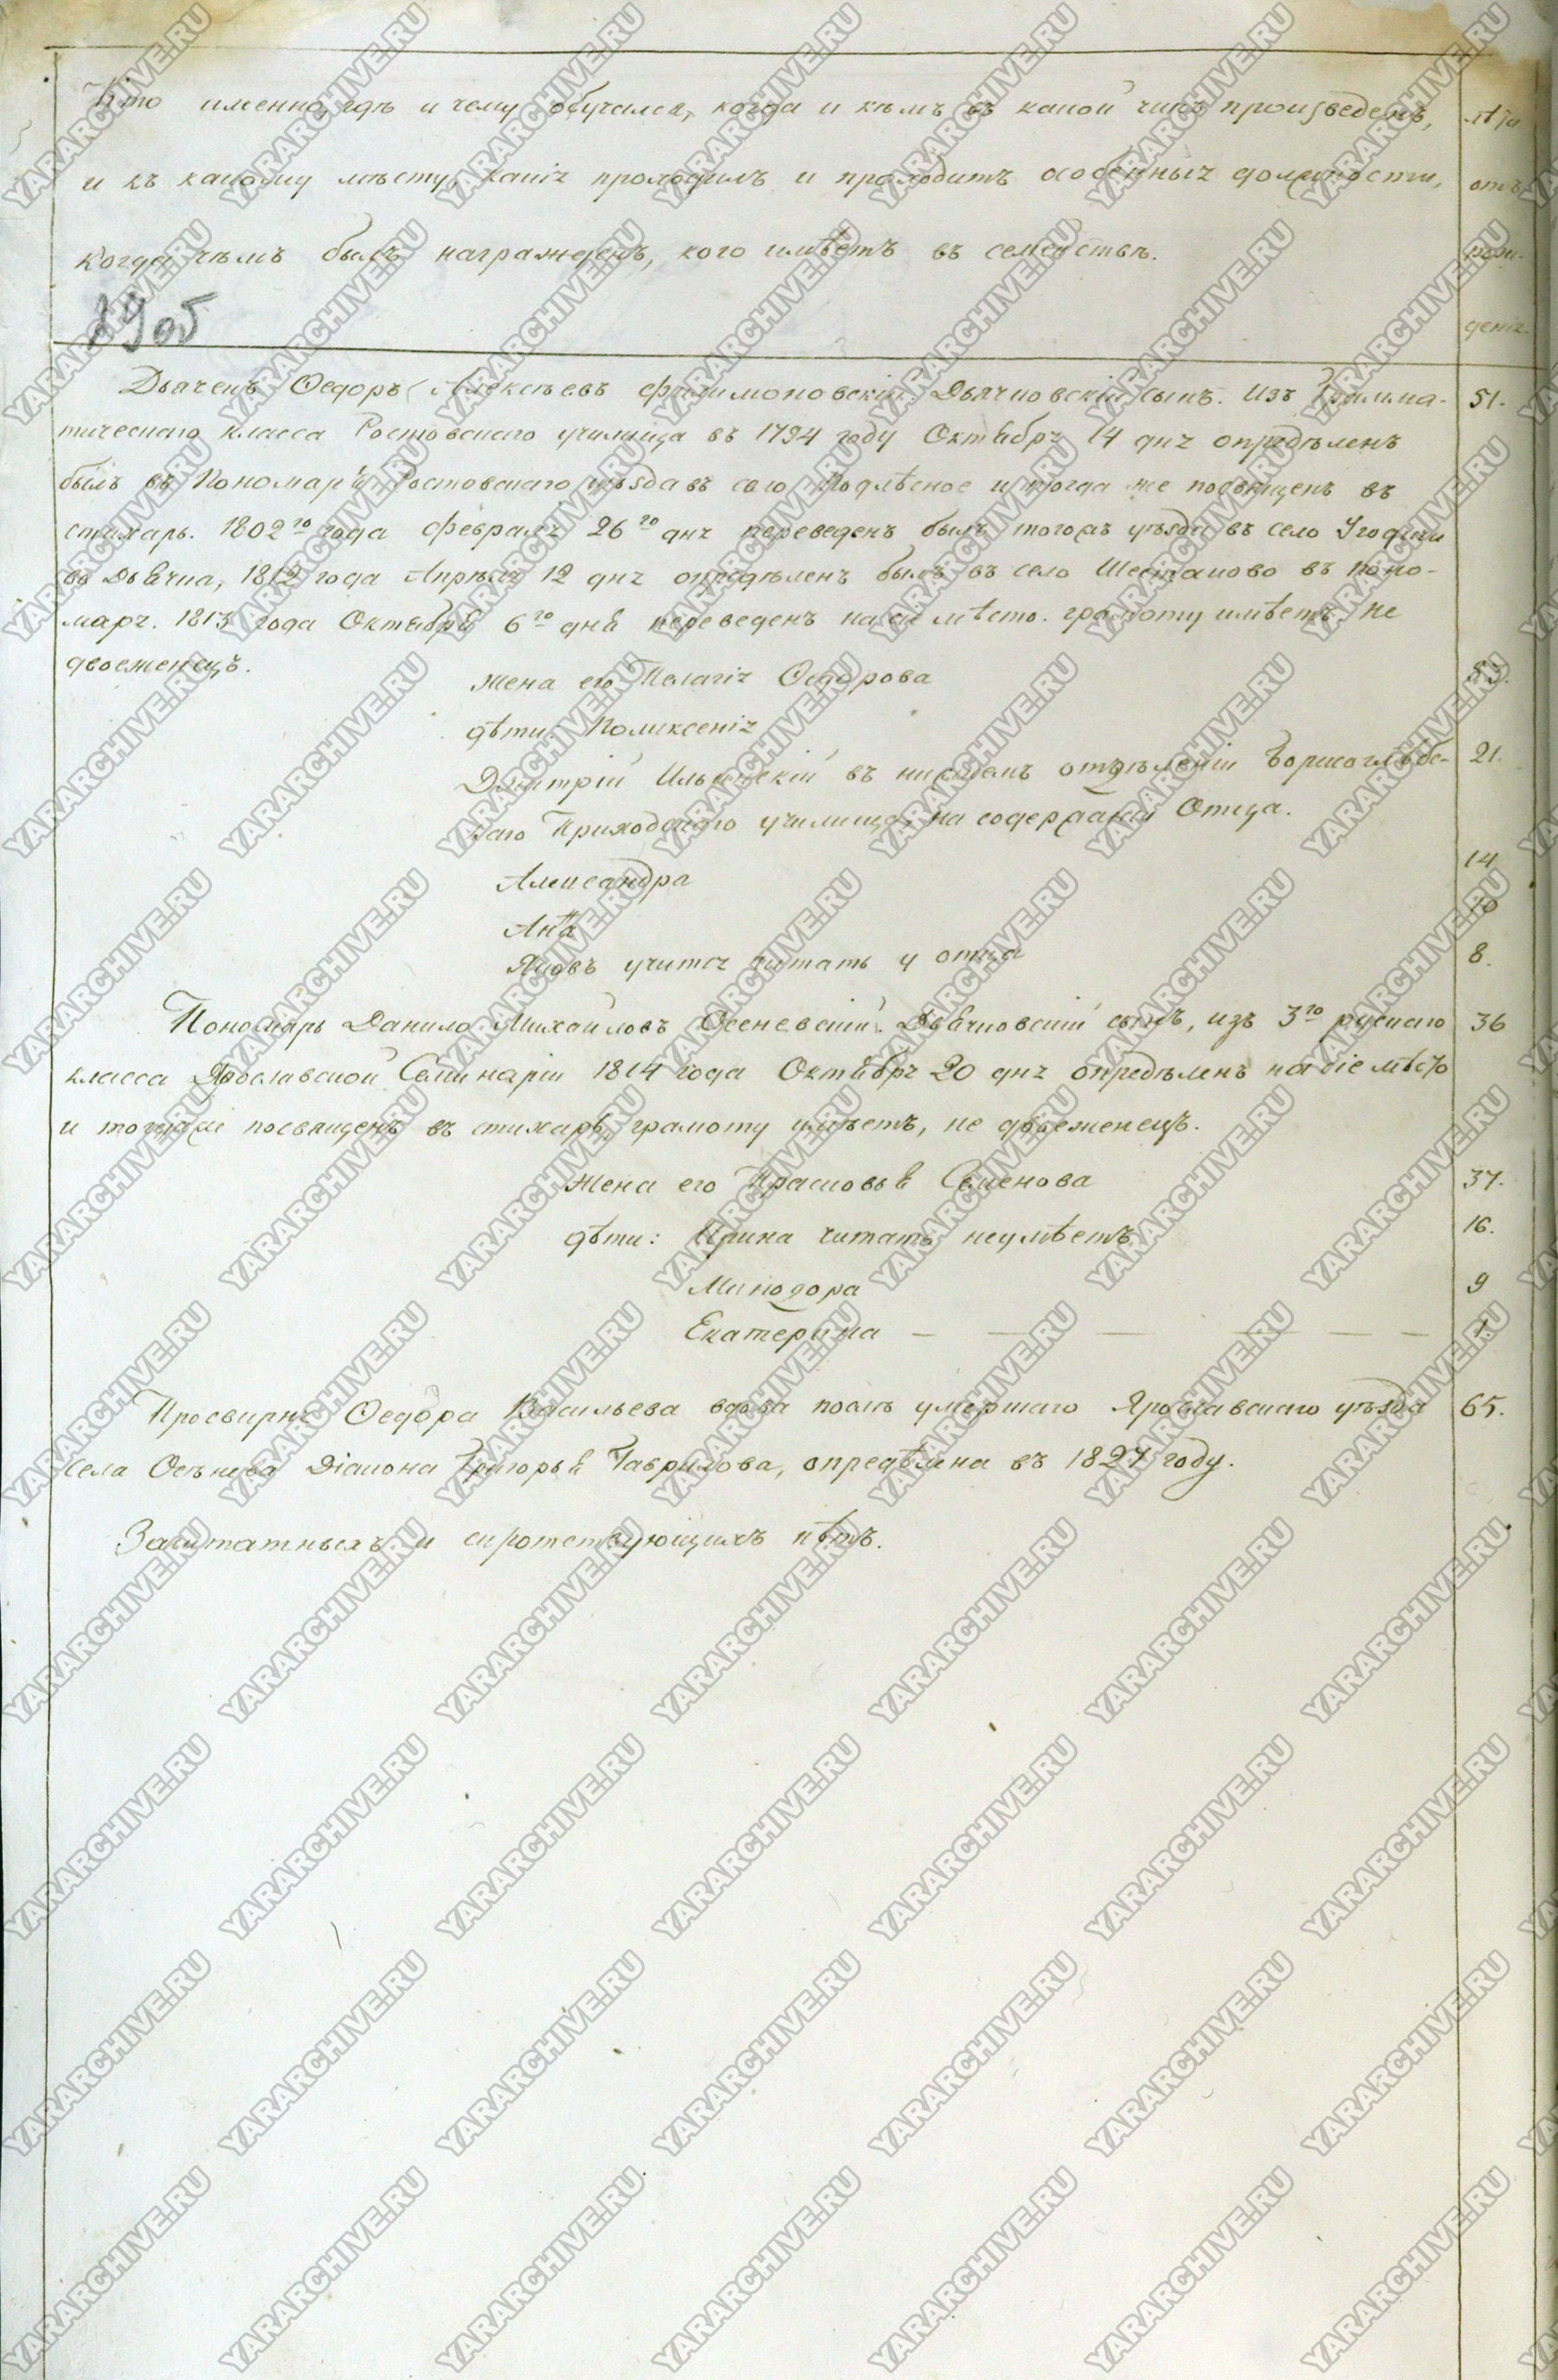 Кто именно, гдѣ и чему обучался, когда и кѣмъ въ какой чинъ произведенъ, лѣта
и къ какому мѣсту, какія проходилъ и проходитъ особенныя должности, отъ
когда чѣмъ былъ награжденъ, кого имѣетъ въ семействѣ. рож-
денія.
19об
Дьячекъ Ѳедоръ Алексѣевъ Филимоновскій. Дьячковскій сынъ. Изъ Грамма- 51.
тическаго класса Ростовскаго училища въ 1794 году Октября 14 дня опредѣленъ
былъ въ Пономаря Ростовскаго уѣзда въ село Подлѣсное и тогда же посвященъ въ
стихарь. 1802го года Февраля 26го дня переведенъ былъ тогожъ уѣзда въ село Угодичи
во Дьячка, 1812 года Апрѣля 12 дня опредѣленъ былъ въ село Шестаково въ поно-
маря. 1813 года Октября 6го дня переведенъ на сіе мѣсто. грамоту имѣетъ. не
двоеженецъ.
жена его Пелагія Ѳедорова 53.
дѣти: Поликсенія 21.
Дмитрій Ильинскій въ нисшемъ отдѣленіи Борисоглѣбс-
каго Приходскаго училища, на содержаніи Отца. 14
Александра 10
Анна
Яковъ учится читать у отца 8.
Пономарь Данило Михайловъ Осеневскій. Дьячковскій сынъ, изъ 3го рускаго 36
класса Ярославской Семинаріи 1814 года Октября 20 дня опредѣленъ на сіе мѣсто
и тогда же посвященъ въ стихарь, грамоту имѣетъ, не двоеженецъ.
жена его Прасковья Семенова 37.
дѣти: Ирина читать неумѣетъ 16.
Минодора 9
Екатерина — — — — — — 1.
Просвирня Ѳедора Васильева вдова послѣ умершаго Ярославскаго уѣзда 65.
села Осѣнева Діакона Григорья Гаврилова, опредѣлена въ 1827 году.
Заштатныхъ и сиротствующихъ нѣтъ.
YARARCHIVE.RU